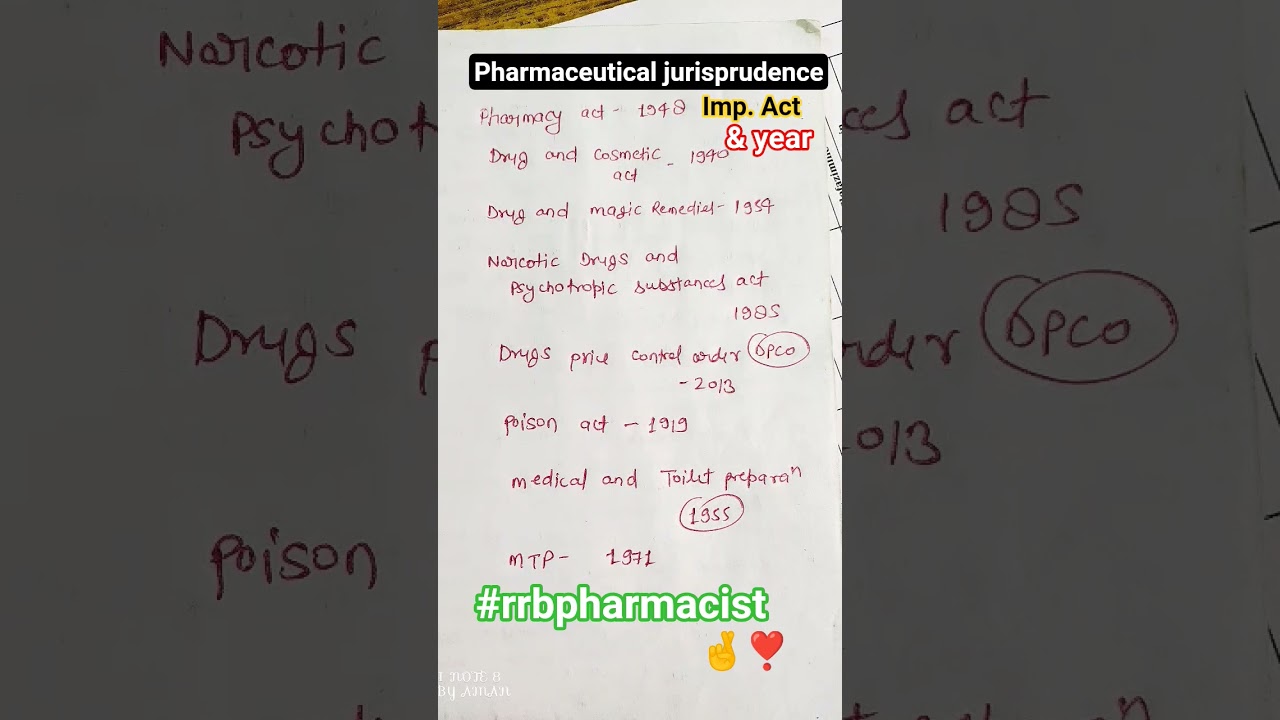 Pharmaceutical jurisprudence
Imp. Act
& year
Pharmacy act - 1948
Drug and cosmetic - 1940
act
Drug and magic Remedies - 1954
Narcotic Drugs and
Psychotropic substances act
1985
Drugs price control order DPCO
- 2013
Poison act - 1919
medical and Toilet preparaⁿ
1955
MTP - 1971
#rrbpharmacist
🤞❣️
NOTE 8
BY AMAN
Narcotic
Psychot
ces act
1985
Drugs p
rder DPCO
2013
Poison